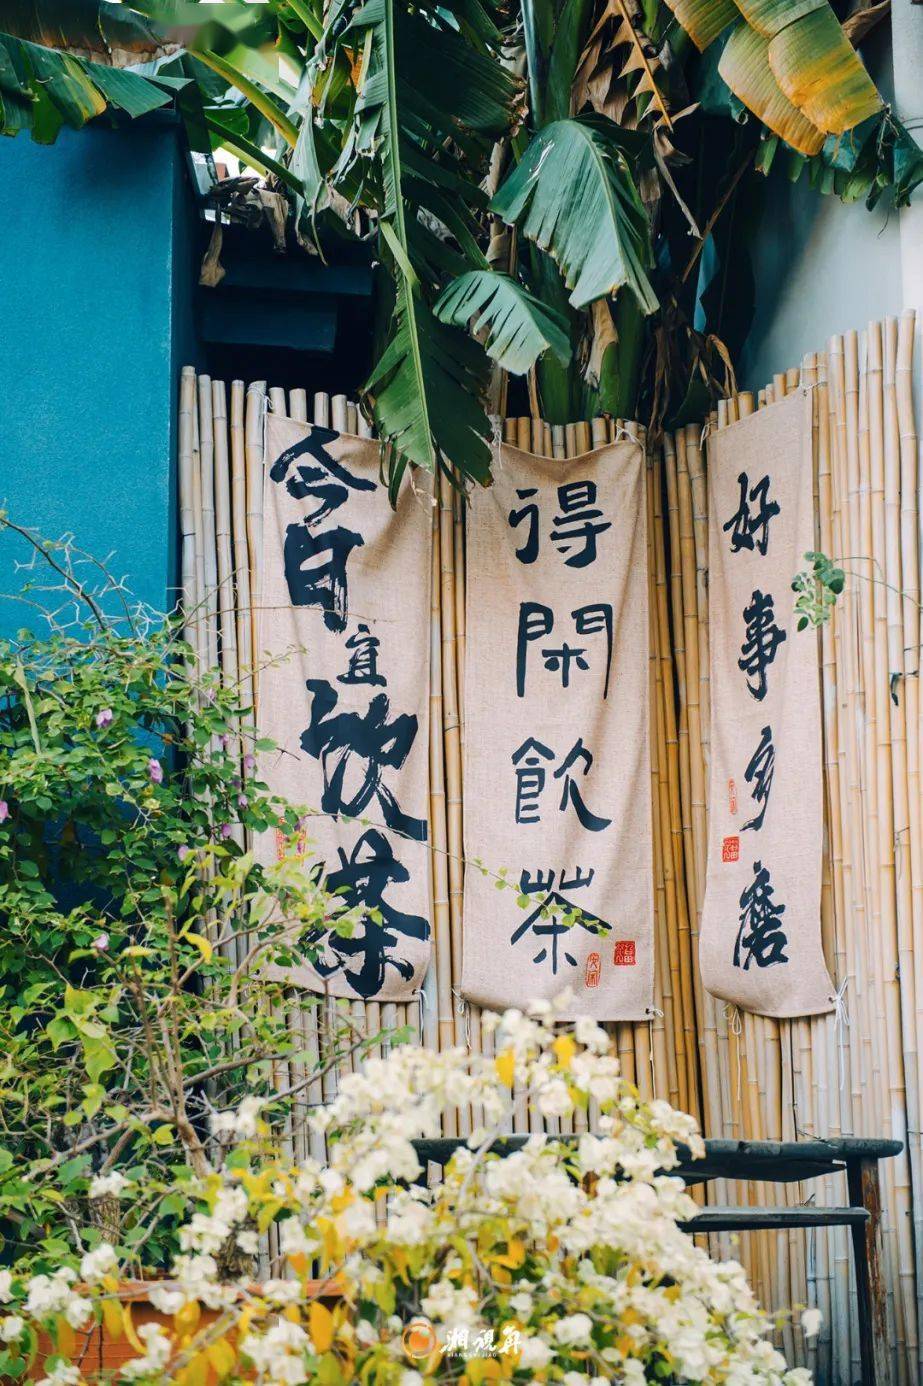 今日宜飲茶
得閑飲茶
好事多磨
湘视角
XIANGSHIJIAO